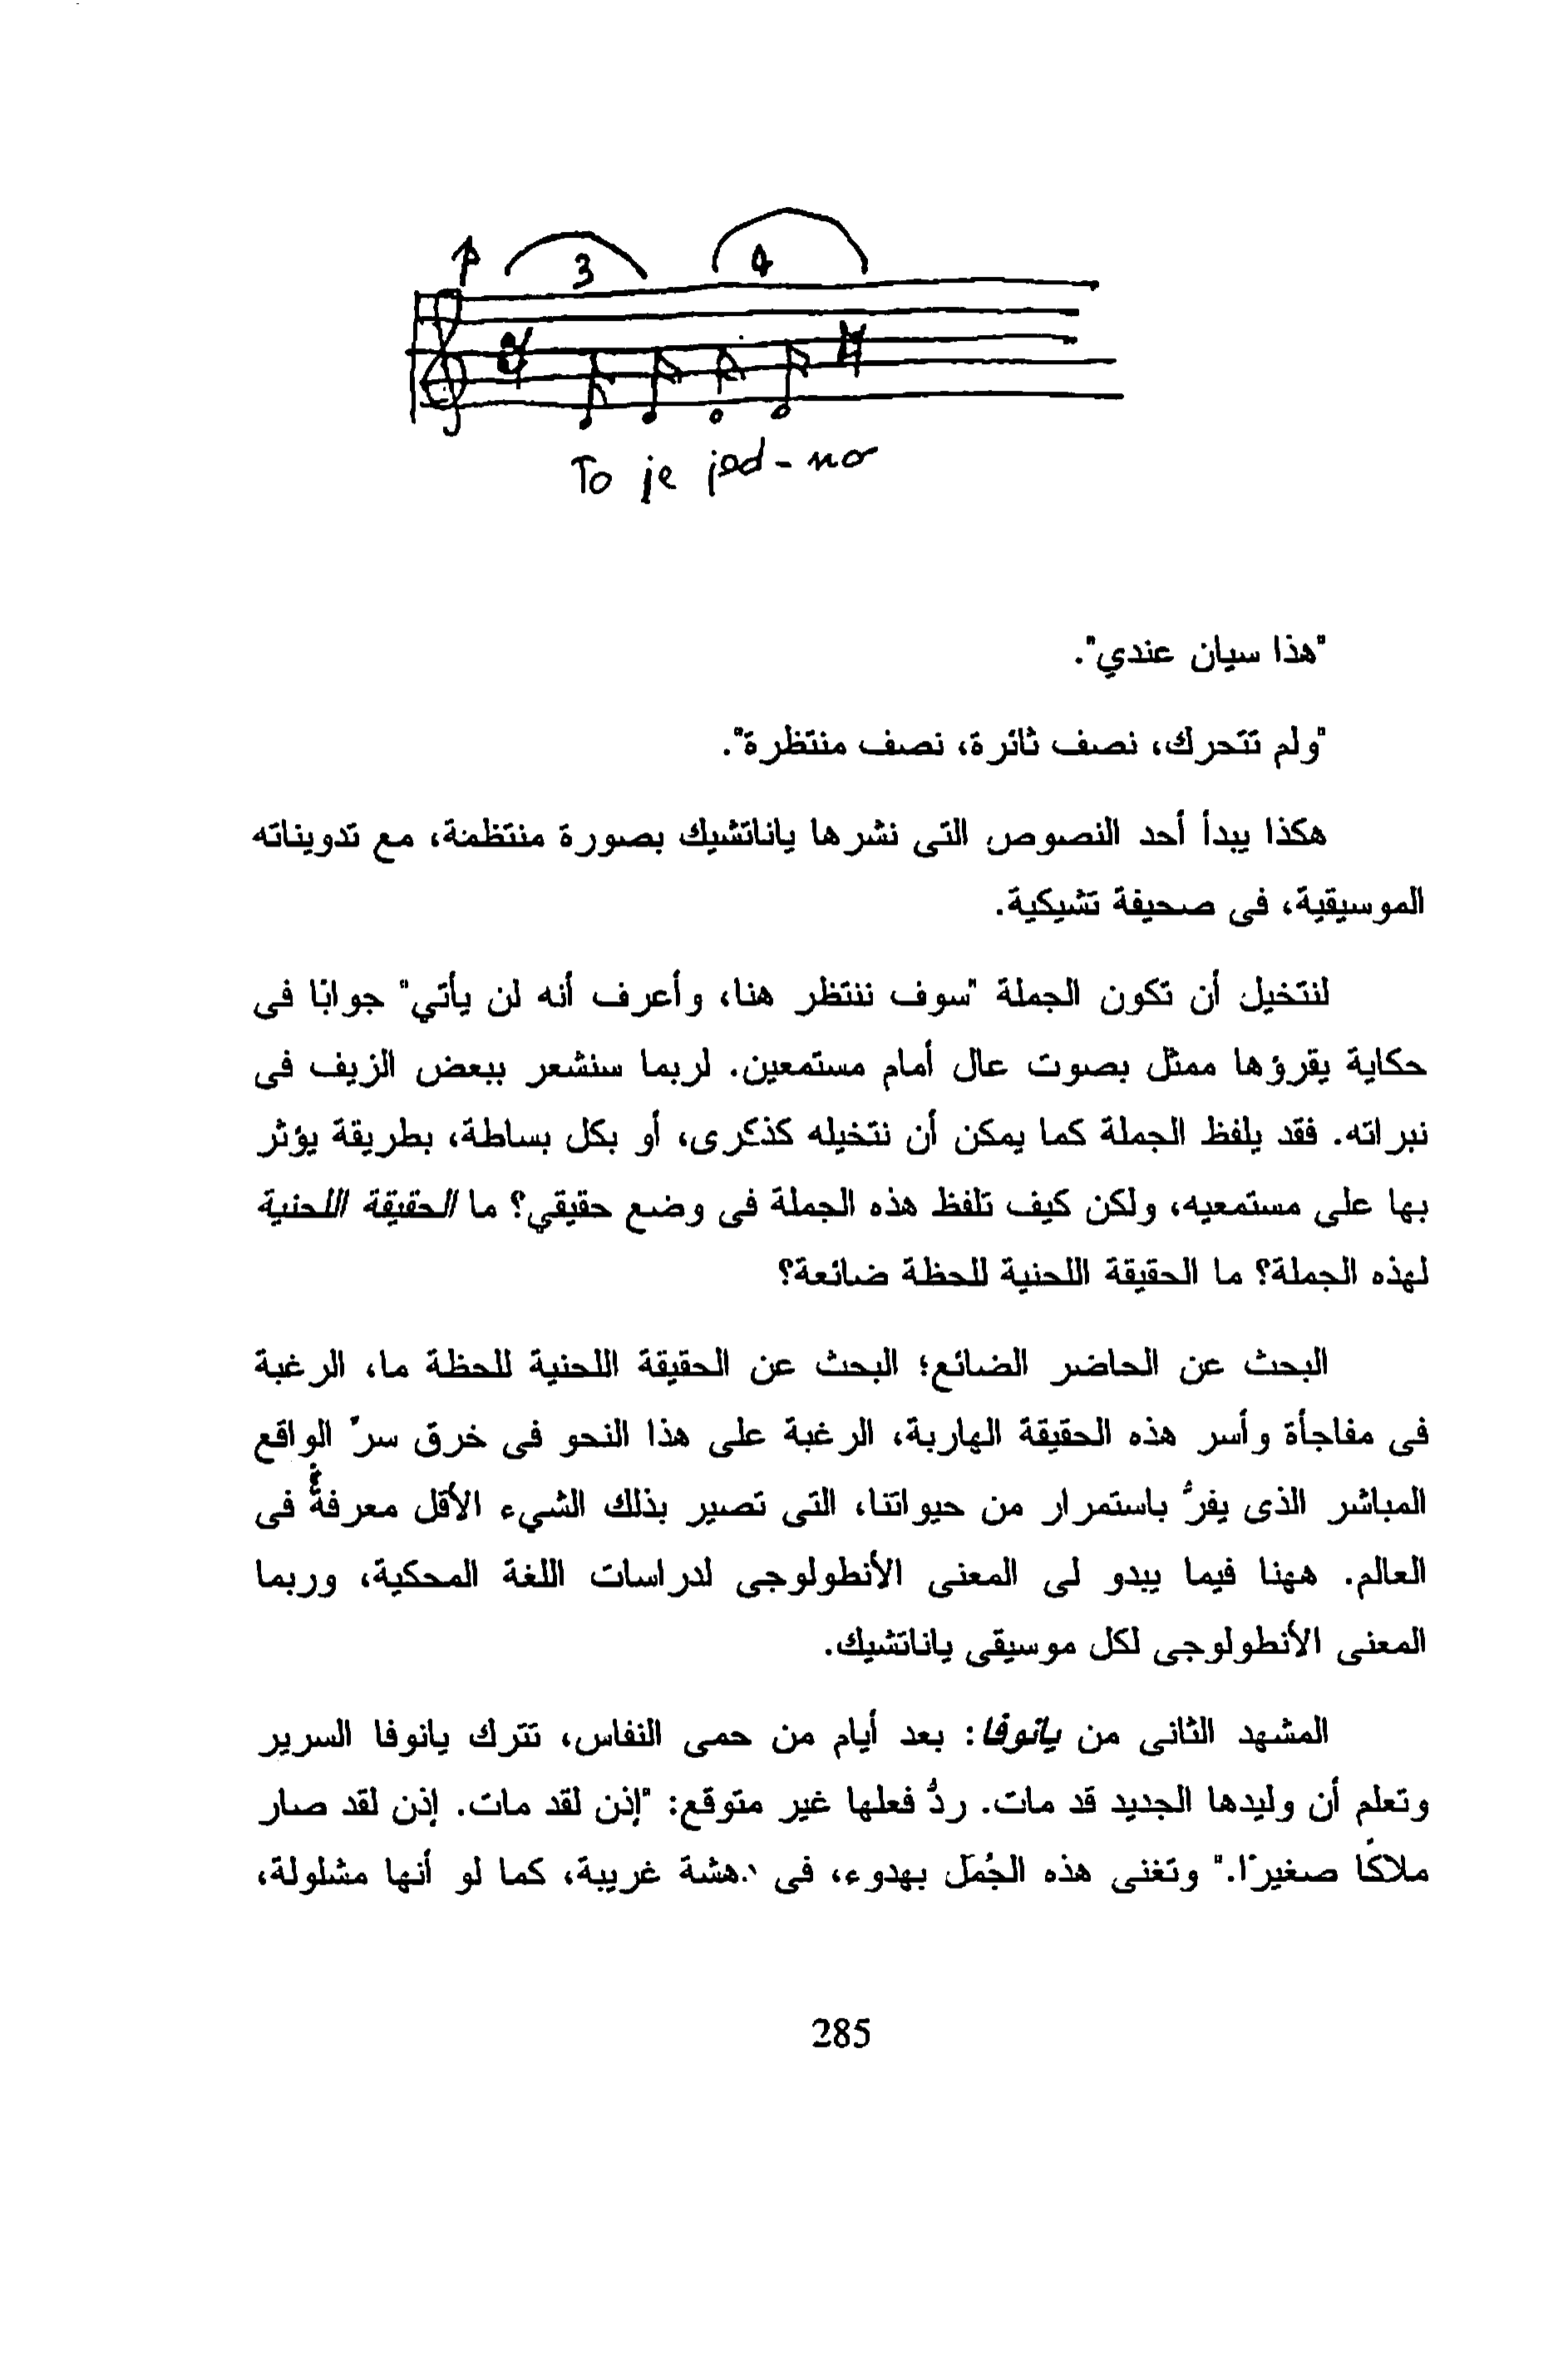 3 4
To je jed-no
"هذا سيان عندي".
"ولم تتحرك، نصف ثائرة، نصف منتظرة".
هكذا يبدأ أحد النصوص التى نشرها ياناتشيك بصورة منتظمة، مع تدويناته
الموسيقية، فى صحيفة تشيكية.
لنتخيل أن تكون الجملة "سوف ننتظر هنا، وأعرف أنه لن يأتي" جوابًا فى
حكاية يقرؤها ممثل بصوت عال أمام مستمعين. لربما سنشعر ببعض الزيف فى
نبراته. فقد يلفظ الجملة كما يمكن أن نتخيله كذكرى، أو بكل بساطة، بطريقة يؤثر
بها على مستمعيه، ولكن كيف تلفظ هذه الجملة فى وضع حقيقي؟ ما الحقيقة اللحنية
لهذه الجملة؟ ما الحقيقة اللحنية للحظة ضائعة؟
البحث عن الحاضر الضائع؛ البحث عن الحقيقة اللحنية للحظة ما، الرغبة
فى مفاجأة وأسر هذه الحقيقة الهاربة، الرغبة على هذا النحو فى خرق سرّ الواقع
المباشر الذى يفرُّ باستمرار من حيواتنا، التى تصير بذلك الشيء الأقل معرفةً فى
العالم. ههنا فيما يبدو لى المعنى الأنطولوجى لدراسات اللغة المحكية، وربما
المعنى الأنطولوجى لكل موسيقى ياناتشيك.
المشهد الثانى من يانوفا: بعد أيام من حمى النفاس، تترك يانوفا السرير
وتعلم أن وليدها الجديد قد مات. ردُّ فعلها غير متوقع: "إذن لقد مات. إذن لقد صار
ملاكًا صغيرًا." وتغنى هذه الجُمل بهدوء، فى دهشة غريبة، كما لو أنها مشلولة،
285